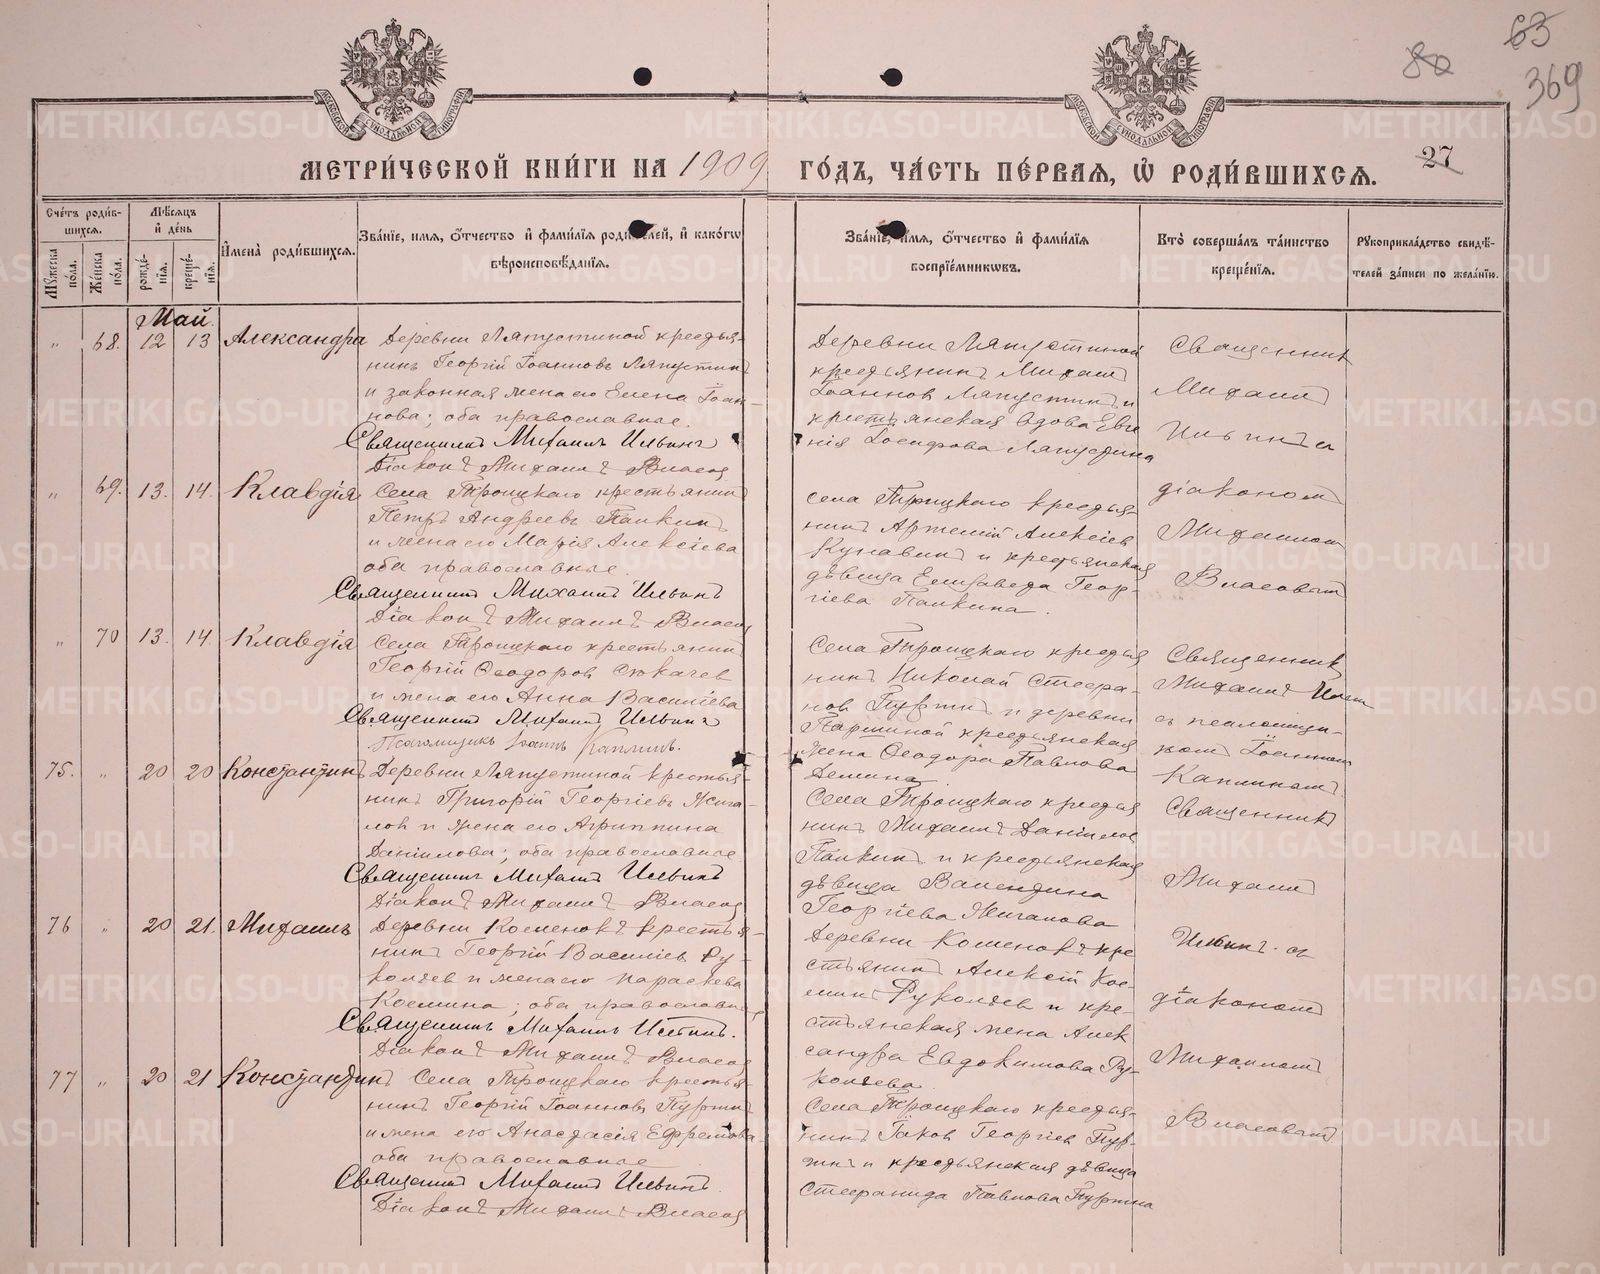 63
80
369
27
МЕТРИ́ЧЕСКОЙ КНИ́ГИ НА 1909 ГО́ДЪ, ЧА́СТЬ ПЕ́РВАЯ, Ѡ҆ РОДИ́ВШИХСЯ.
Сче́тъ роди́в-
шихся.
Мꙋ́жеска по́ла.
Же́нска по́ла.
Мѣ́сяцъ
и҆ де́нь
рожде́-
нїя.
креще́-
нїя.
И҆мена̀ роди́вшихся.
Зва́нїе, имя, ѻ҆́тчество и҆ фами́лїя роди́телей, и҆ како́гѡ
вѣроисповѣ́данїя.
Зва́нїе, имя, ѻ҆́тчество и҆ фами́лїя
воспрїе́мникѡвъ.
Кто̀ соверша́лъ та́инство
креще́нїя.
Рꙋкоприкла́дство свидѣ́-
телей за́писи по жела́нїю.
Май.
" 68. 12 13 Александра
Деревни Ляпустиной кресть‑
янинъ Георгій Іоанновъ Ляпустинъ
и законная жена его Елена Іоан-
нова; оба православные.
Священникъ Михаилъ Ильинъ
Діаконъ Михаилъ Власовъ
Деревни Ляпустиной
крестьянинъ Михаилъ
Іоанновъ Ляпустинъ и
крестьянская вдова Евге
нія Іосифова Ляпустина
Священникъ
Михаилъ
Ильинъ съ
" 69. 13. 14. Клавдія
Села Троицкаго крестьянинъ
Петръ Андреевъ Папкинъ
и жена его Марія Алексіева
оба православные.
Священникъ Михаилъ Ильинъ
Діаконъ Михаилъ Власовъ
Села Троицкаго крестья-
нинъ Артемій Алексіевъ
Кунавинъ и крестьянская
дѣвица Елисавета Геор-
гіева Папкина.
діакономъ
Михаиломъ
Власовымъ
" 70 13. 14 Клавдія
Села Троицкаго крестьянинъ
Георгій Ѳеодоровъ Сюкаевъ
и жена его Анна Василіева
Священникъ Михаилъ Ильинъ
Псаломщикъ Іоаннъ Каплинъ.
Села Троицкаго крестья
нинъ Николай Стефа-
новъ Пуртинъ и деревни
Паршиной крестьянская
жена Ѳеодора Павлова
Демина
Священникъ
Михаилъ Ильинъ
съ псаломщи-
комъ Іоанномъ
Каплинымъ.
75. " 20 20 Константинъ
Деревни Ляпустиной крестья-
нинъ Григорій Георгіевъ Жига-
ловъ и жена его Агриппина
Даніилова; оба православные
Священникъ Михаилъ Ильинъ
Діаконъ Михаилъ Власовъ
Села Троицкаго крестья
нинъ Михаилъ Даніиловъ
Папкинъ и крестьянская
дѣвица Валентина
Георгіева Жигалова
Священникъ
Михаилъ
76 " 20 21. Михаилъ
Деревни Кошенокъ крестья-
нинъ Георгій Василіевъ Ру-
колѣевъ и жена его Параскева
Космина; оба православные
Священникъ Михаилъ Ильинъ.
Діаконъ Михаилъ Власовъ
Деревни Кошенокъ кре
стьянинъ Алексій Кос-
минъ Руколѣевъ и кре-
стьянская жена Алек
сандра Евдокимова Ру-
колѣева.
Ильинъ съ
діакономъ
Михаиломъ
77 " 20 21 Константинъ
Села Троицкаго крестья-
нинъ Георгій Іоанновъ Пуртинъ
и жена его Анастасія Ефремова
оба православные
Священникъ Михаилъ Ильинъ.
Діаконъ Михаилъ Власовъ
Села Троицкаго крестья-
нинъ Іаковъ Георгіевъ Пур-
тинъ и крестьянская дѣвица
Стефанида Павлова Пуртина
Власовымъ
METRIKI.GASO-URAL.RU